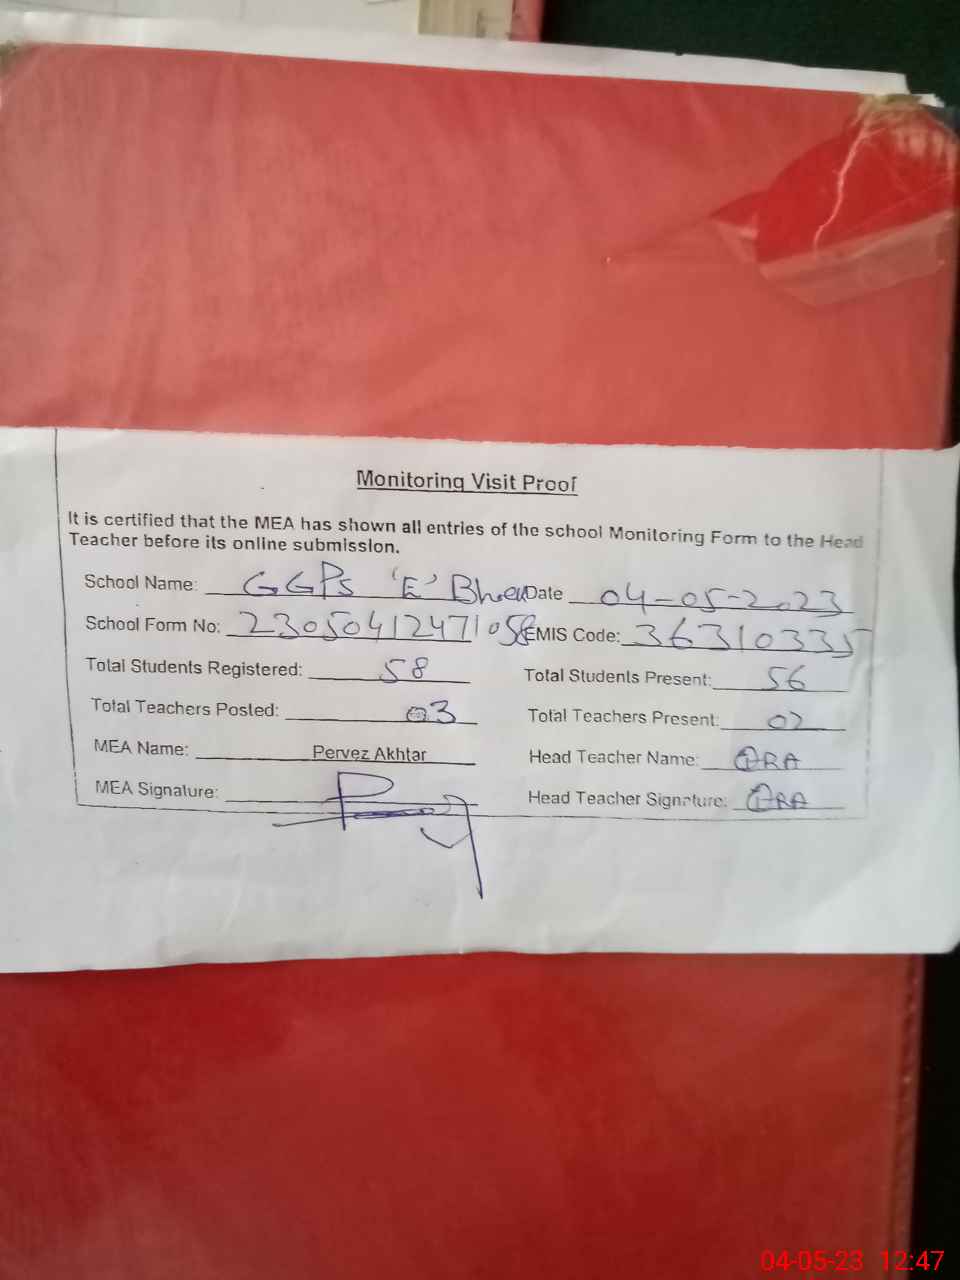 Monitoring Visit Proof
It is certified that the MEA has shown all entries of the school Monitoring Form to the Head
Teacher before its online submission.
School Name: GGPS 'E' Date 04-05-2023
School Form No: 23050412471058 EMIS Code: 36310335
Total Students Registered: 58 Total Students Present: 56
Total Teachers Posted: 03 Total Teachers Present: 02
MEA Name: Pervez Akhtar Head Teacher Name:
MEA Signature: Head Teacher Signature:
04-05-23 12:47